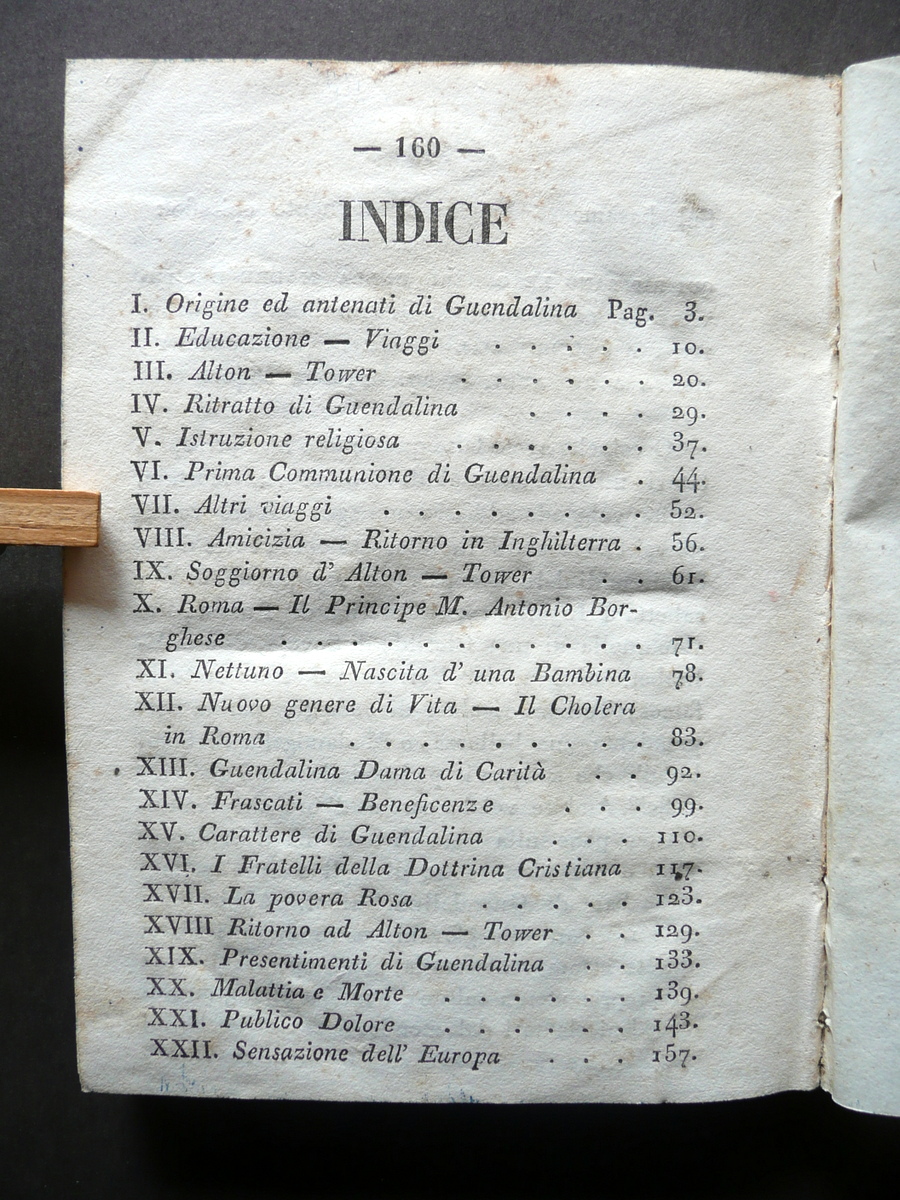 — 160 —
INDICE
I. Origine ed antenati di Guendalina Pag. 3.
II. Educazione — Viaggi . . . . . 10.
III. Alton — Tower . . . . . . 20.
IV. Ritratto di Guendalina . . . . 29.
V. Istruzione religiosa . . . . . . 37.
VI. Prima Communione di Guendalina . 44.
VII. Altri viaggi . . . . . . . . 52.
VIII. Amicizia — Ritorno in Inghilterra . 56.
IX. Soggiorno d' Alton — Tower . . 61.
X. Roma — Il Principe M. Antonio Bor-
ghese . . . . . . . . . . . 71.
XI. Nettuno — Nascita d' una Bambina 78.
XII. Nuovo genere di Vita — Il Cholera
in Roma . . . . . . . . . 83.
XIII. Guendalina Dama di Carità . . 92.
XIV. Frascati — Beneficenze . . . 99.
XV. Carattere di Guendalina . . . 110.
XVI. I Fratelli della Dottrina Cristiana 117.
XVII. La povera Rosa . . . . . 123.
XVIII Ritorno ad Alton — Tower . . 129.
XIX. Presentimenti di Guendalina . . 133.
XX. Malattia e Morte . . . . . 139.
XXI. Publico Dolore . . . . . 143.
XXII. Sensazione dell' Europa . . . 157.